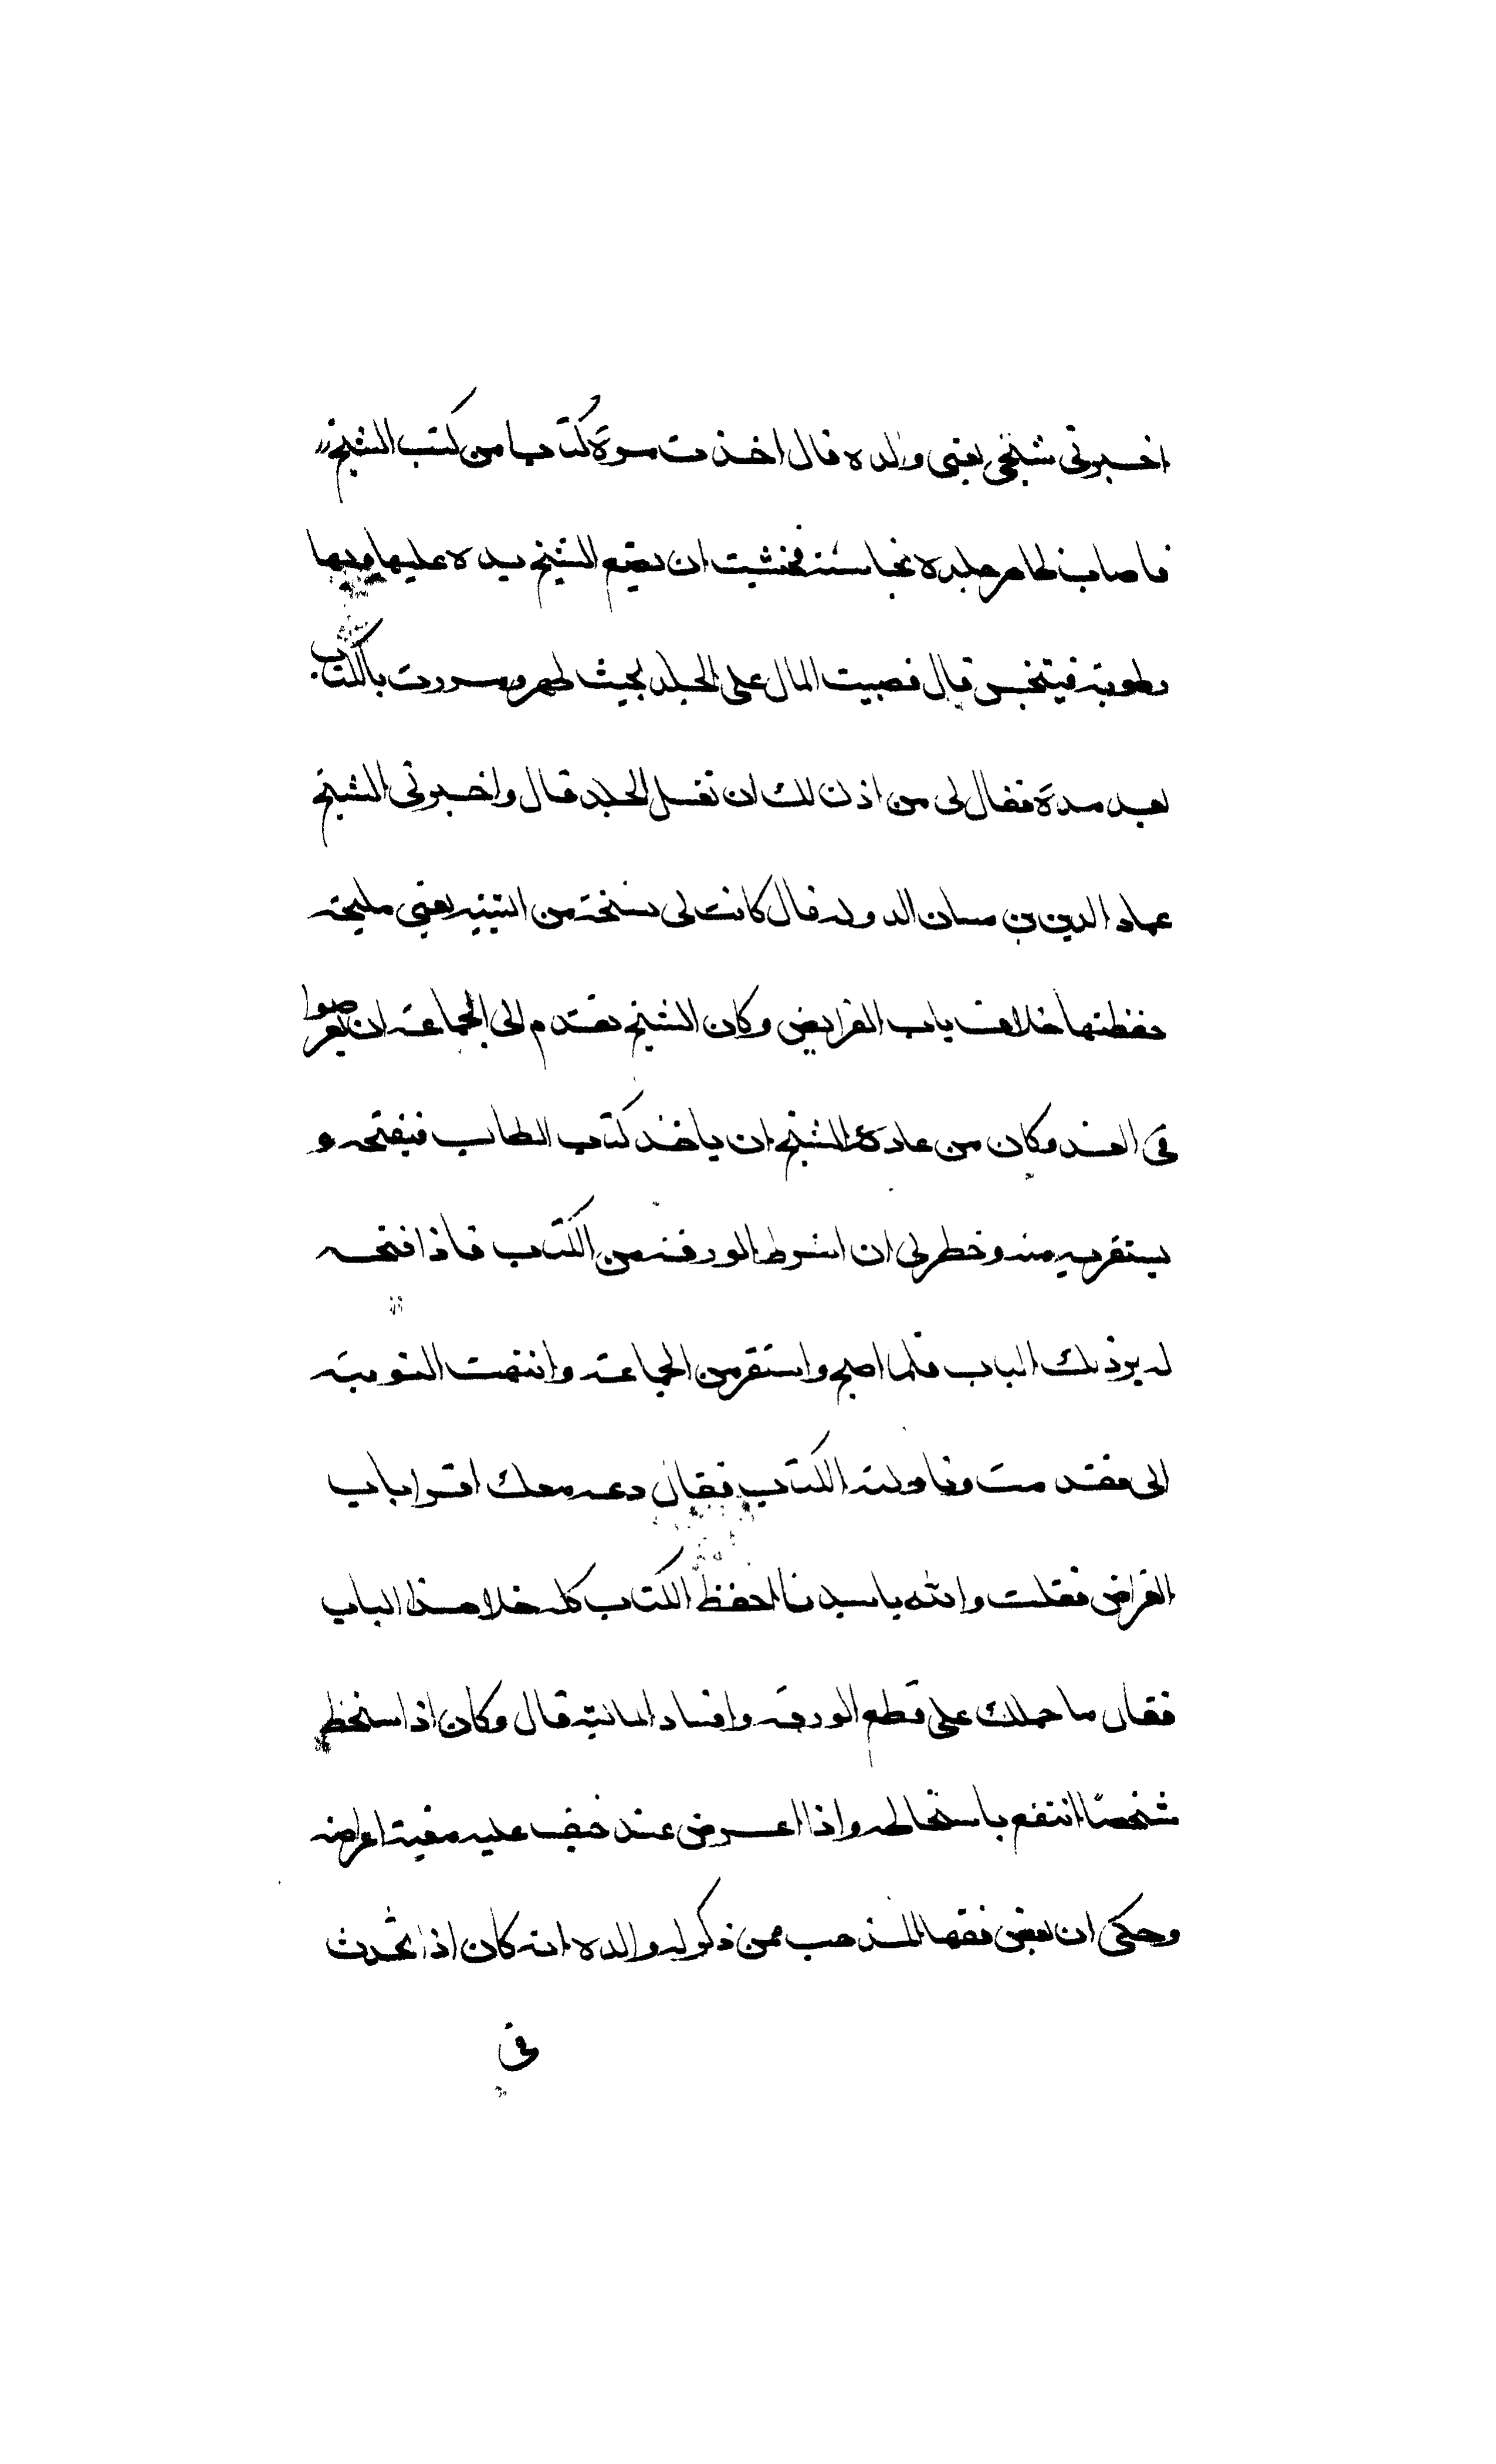 اخبرنى شيخى يعنى والده قال اخذت مرة كتابا من كتب الشيخ
فاصاب ظاهر جلده نجاسة فخشيت ان يضع الشيخ يده عليها وبها
رطوبة فيتنجس قال فصبيت المال على الجلد بحيث طهر ومررت بالكتاب
بعد مدة فقال لى من اذن لك ان تغسل الجلد قال واخبرنى الشيخ
عماد الدين بن سان الدوله قال كانت لى نسخة من التنبيه يعنى مليحة
حفظتها خلاف باب الفرايض وكان الشيخ تقدم الى الجماعة ان يعرضوا
فى الغد وكان من عادة الشيخ ان ياخذ كتاب الطالب فيفتحه و
يستقريه منه وخطر لى ان اشرط الورقة من الكتاب فاذا فتحه
لم ير ذلك الباب فلما اصبح واستقر من الجماعة وانتهت النوبة
الى فقدمت وناولته الكتاب فقال دعه معك اقرا باب
الفراض فقلت والله يا سيدنا احفظ الكتاب كله خلا هذا الباب
فقال ما حملك على قطع الورقة وافساد المالية قال وكان اذا استحظ
شخصا انتفع بالحاظه واذا اعرض عند خيف عليه مغبة اعراضه
وحكى ان بعض فقها المذهب ممن ذكر له والده انه كان اذا تحدث
فى